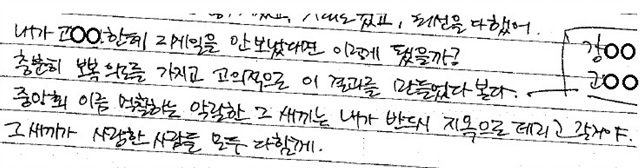 기대도 컸고, 최선을 다했어.
내가 고○○한테 그 메일을 안 보냈다면 이렇게 됐을까?
충분히 보복 의도를 가지고 고의적으로 이 결과를 만들었다 본다.
강○○
고○○
중앙회 이름 먹칠하는 악랄한 그 새끼는 내가 반드시 지옥으로 데리고 갈거야.
그 새끼가 사랑한 사람들 모두 다 함께.